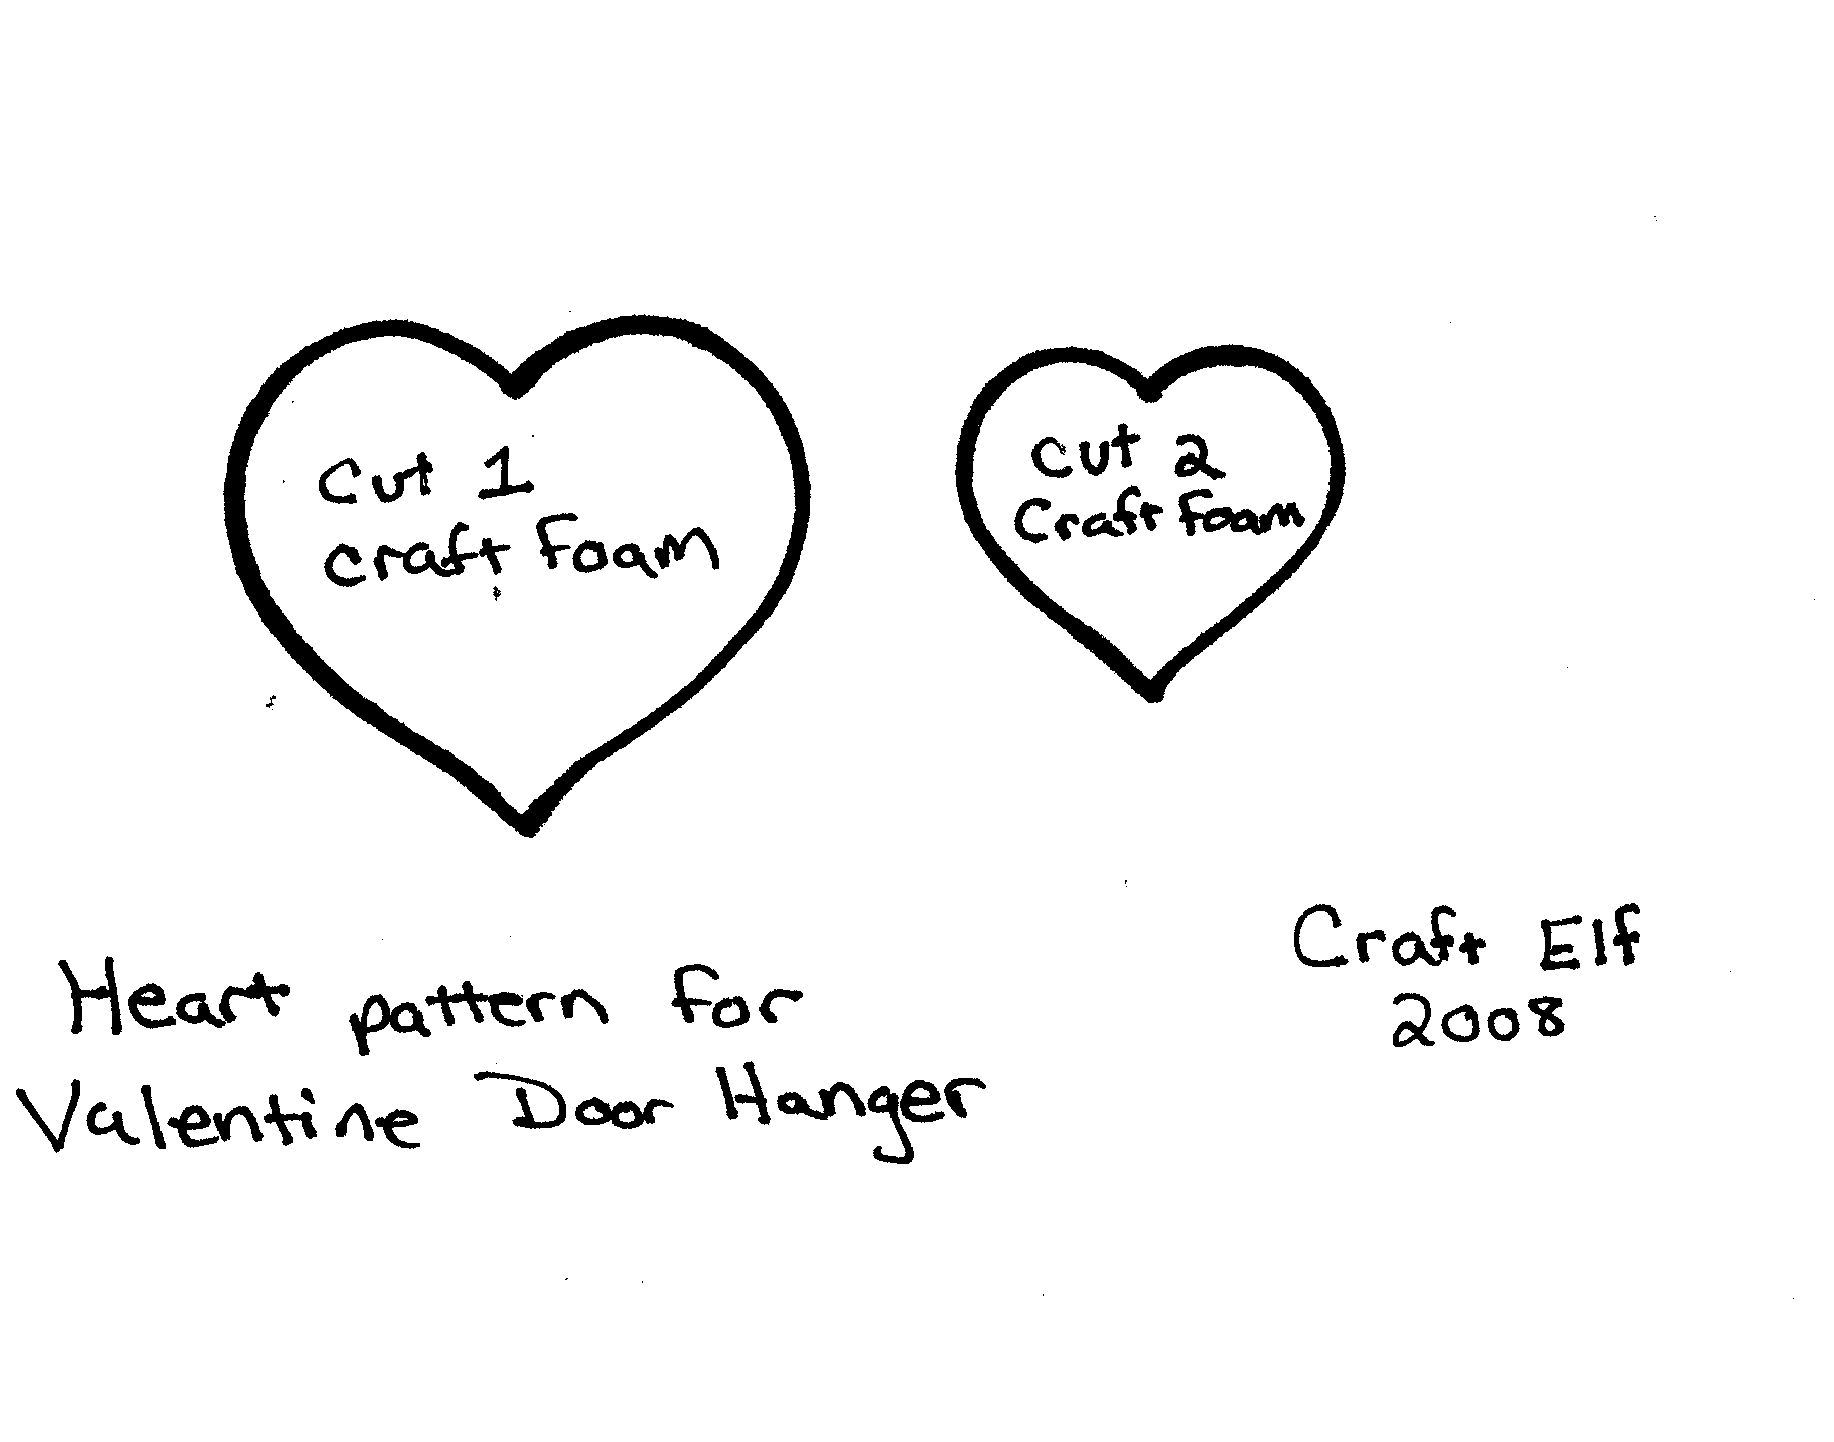 Cut 1
Craft Foam
Cut 2
Craft Foam
Heart pattern for
Valentine Door Hanger
Craft Elf
2008